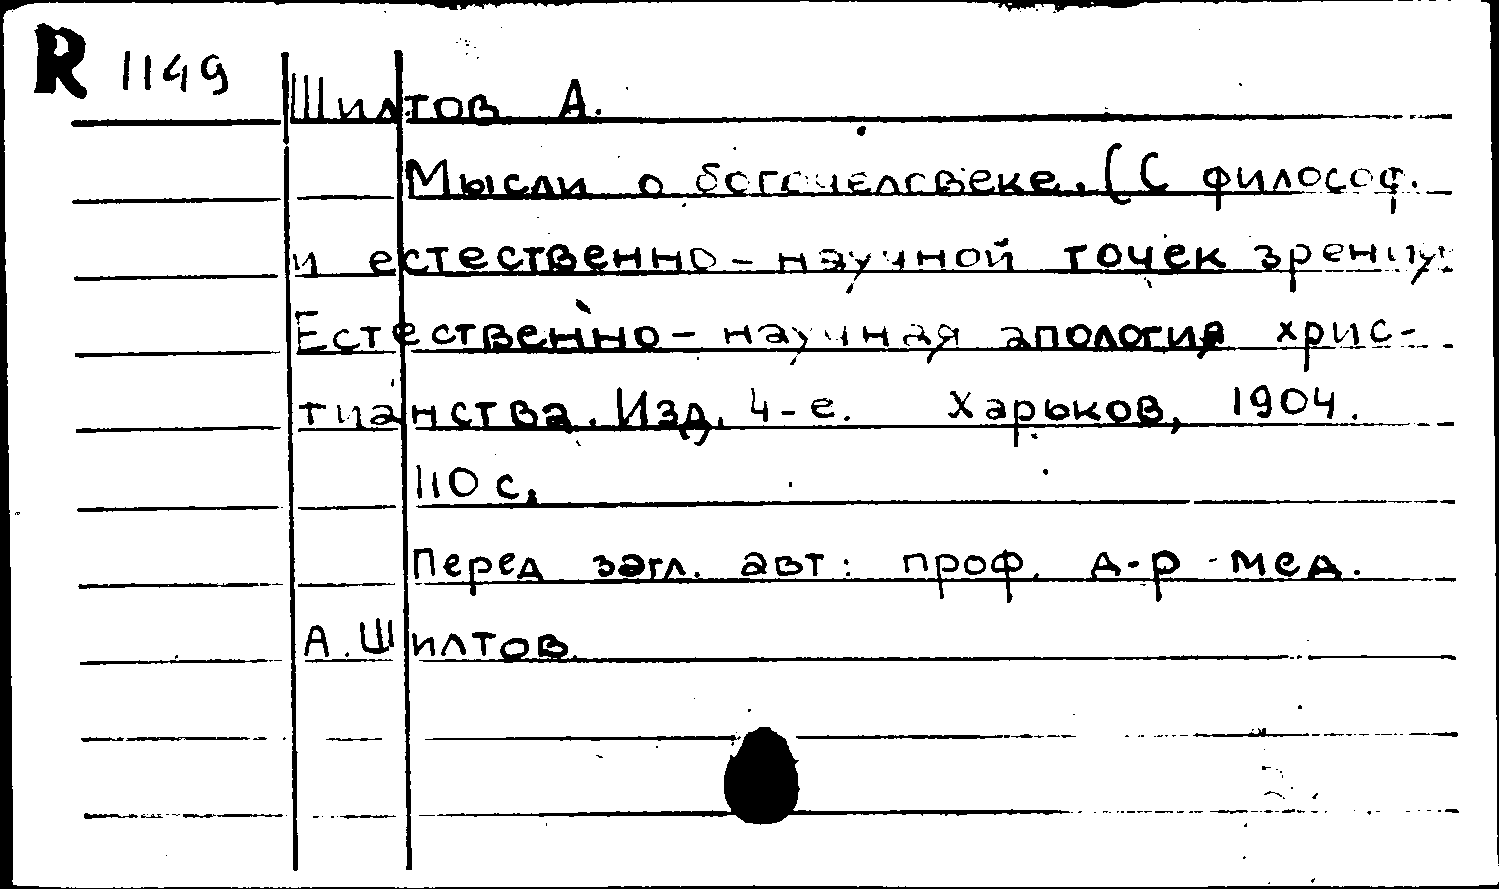 R 1149
Шилтов А.
Мысли о богочеловеке. (С философ.
и естественно-научной точек зрения)
Естественно-научная апология хрис-
тианства. Изд. 4-е. Харьков, 1904.
110 с.
Перед загл. авт: проф. д-р мед.
А. Шилтов.